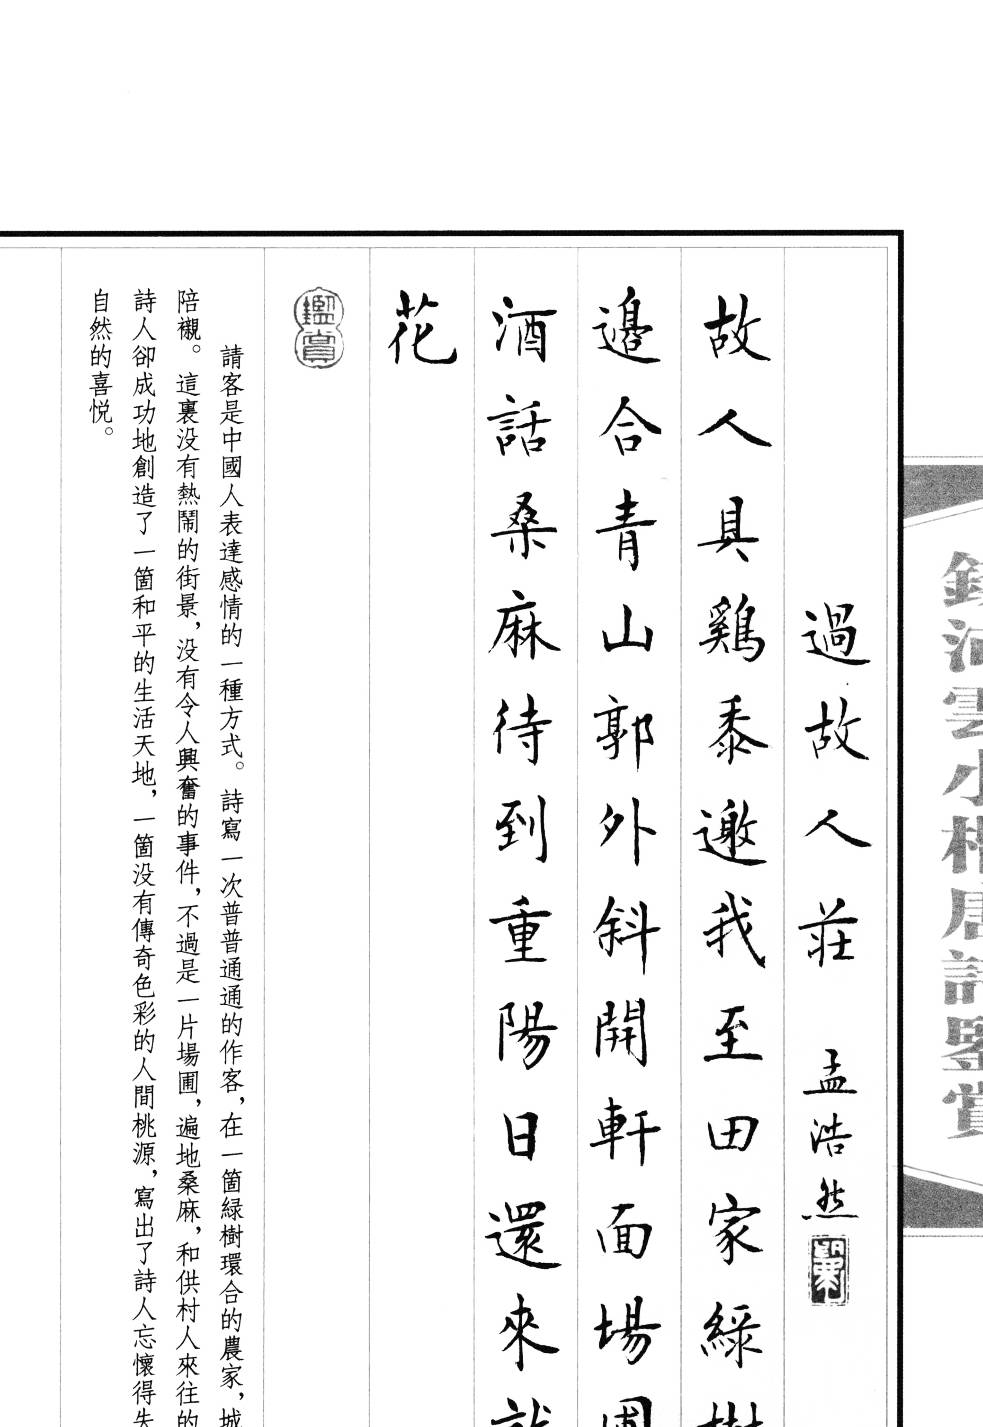 過故人莊 孟浩然
故人具鷄黍邀我至田家綠樹
邊合青山郭外斜開軒面場圃
酒話桑麻待到重陽日還來就
花
鑑賞
請客是中國人表達感情的一種方式。詩寫一次普普通通的作客，在一箇緑樹環合的農家，城
陪襯。這裏没有熱鬧的街景，没有令人興奮的事件，不過是一片場圃，遍地桑麻，和供村人來往的
詩人卻成功地創造了一箇和平的生活天地，一箇没有傳奇色彩的人間桃源，寫出了詩人忘懷得失
自然的喜悦。
河雲小楷唐詩鑒賞